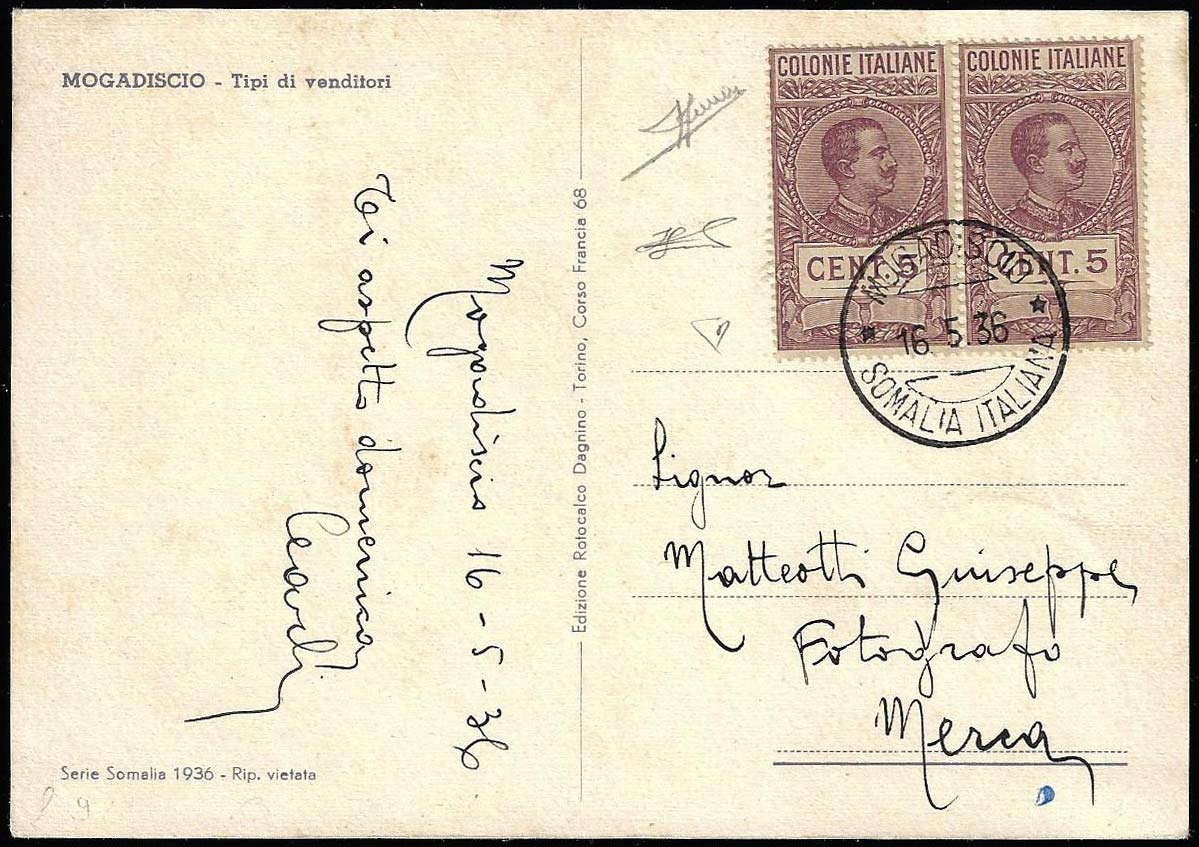 MOGADISCIO - Tipi di venditori
Mogadiscio 16-5-36
Ti aspetto domenica
Serie Somalia 1936 - Rip. vietata
Edizione Rotocalco Dagnino - Torino, Corso Francia 68
COLONIE ITALIANE
CENT. 5
COLONIE ITALIANE
CENT. 5
MOGADISCIO
16 5.36
SOMALIA ITALIANA
Signor
Matteotti Giuseppe
Fotografo
Merca